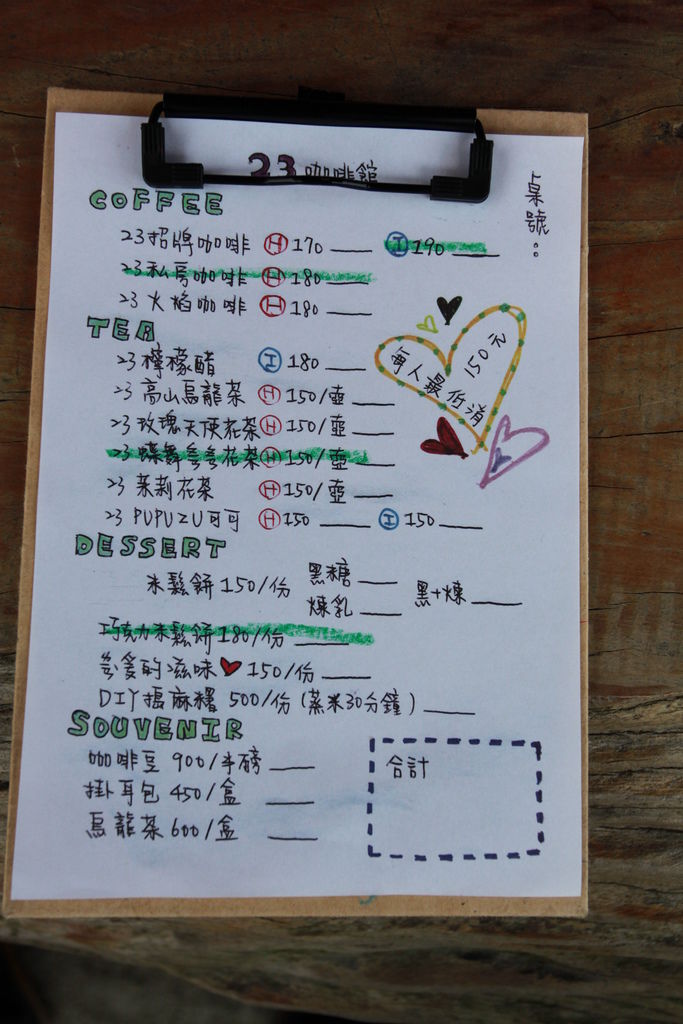 23 咖啡館
桌號：
COFFEE
23招牌咖啡 Ⓗ 170 ____ Ⓘ 190 ____
23私房咖啡 Ⓗ 180 ____
23火焰咖啡 Ⓗ 180 ____
每人最低消 150元
TEA
23檸檬醋 Ⓘ 180 ____
23高山烏龍茶 Ⓗ 150/壺 ____
23玫瑰天使花茶 Ⓗ 150/壺 ____
23蝶舞 花茶 Ⓗ 150/壺 ____
23茉莉花茶 Ⓗ 150/壺 ____
23 PUPUZU可可 Ⓗ 150 ____ Ⓘ 150 ____
DESSERT
米鬆餅 150/份 黑糖 ____ 黑+煉 ____
煉乳 ____
巧克力米鬆餅 180/份 ____
的滋味 ♥ 150/份 ____
DIY搗麻糬 500/份 (蒸米30分鐘) ____
SOUVENIR
咖啡豆 900/半磅 ____
掛耳包 450/盒 ____
烏龍茶 600/盒 ____
合計